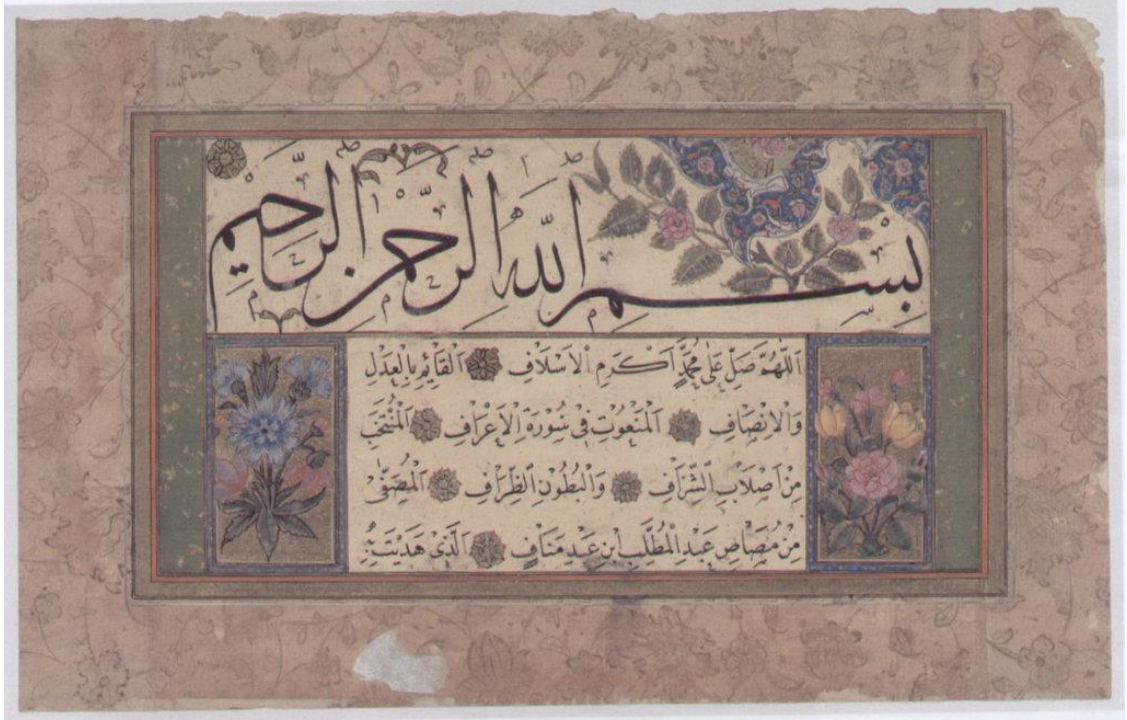 بِسْمِ اللهِ الرَّحْمٰنِ الرَّحِيْمِ
اَللّٰهُمَّ صَلِّ عَلٰى مُحَمَّدٍ اَكْرَمِ الْاَسْلَافِ الْقَائِمِ بِالْعَدْلِ
وَالْاِنْصَافِ الْمَنْعُوتِ فِى سُورَةِ الْاَعْرَافِ الْمُنْتَخَبِ
مِنْ اَصْلَابِ الشِّرَافِ وَالْبُطُونِ الظِّرَافِ الْمُصَفّٰى
مِنْ مُصَاصِ عَبْدِ الْمُطَّلِبِ ابْنِ عَبْدِ مَنَافٍ الَّذِى هَدَيْتَ بِهِ